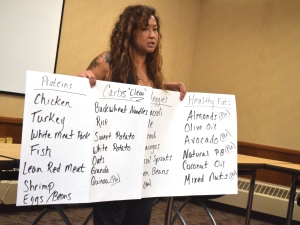 Proteins
Chicken
Turkey
White Meat Pork
Fish
Lean Red Meat
Shrimp
Eggs/Beans
Carbs "Clean"
Buckwheat Noodles
Rice
Sweet Potato
White Potato
Oats
Granola
Quinoa
Veggies
Sprouts
Beans
Healthy Fats
Almonds
Olive Oil
Avocado
Natural PB
Coconut Oil
Mixed Nuts